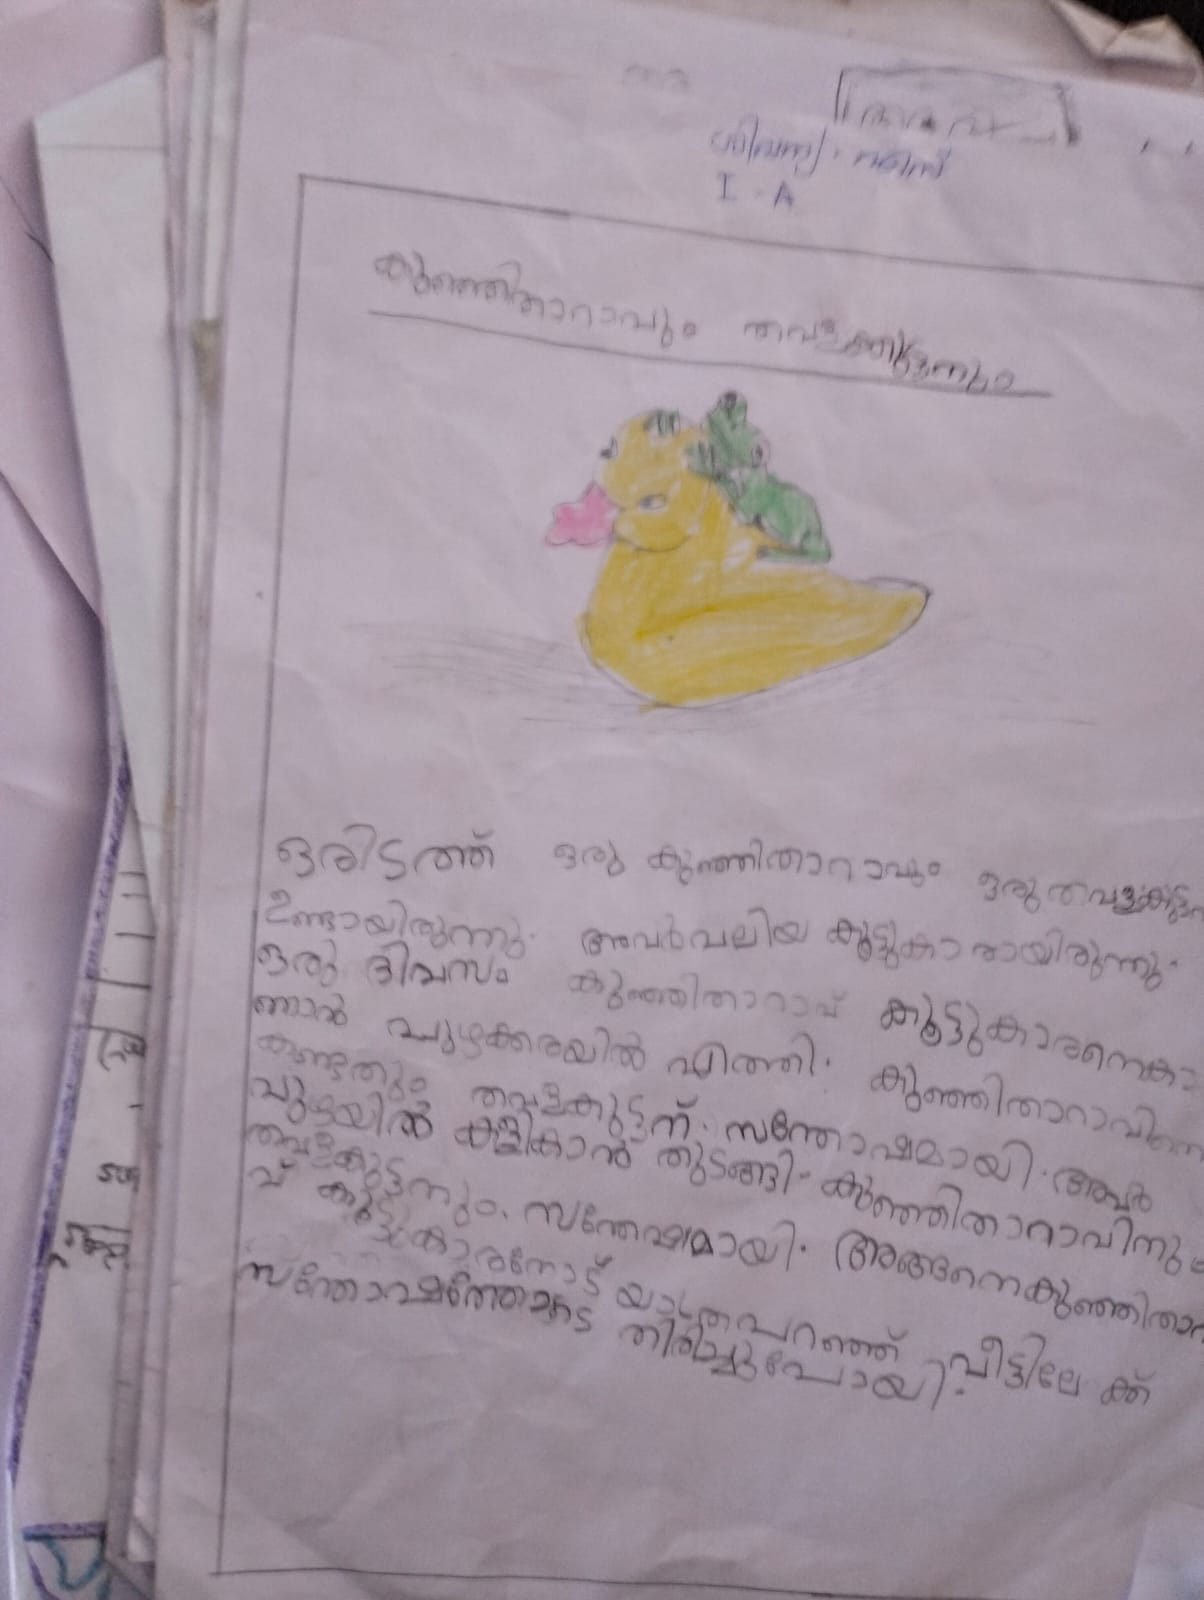 ശിവന്യ.
I - A
കുഞ്ഞിതാറാവും തവളക്കുട്ടനും
ഒരിടത്ത് ഒരു കുഞ്ഞിതാറാവും ഒരു തവളക്കുട്ടന
ഉണ്ടായിരുന്നു. അവർവലിയ കൂട്ടുകാരായിരുന്നു.
ഒരു ദിവസം കുഞ്ഞിതാറാവ് കൂട്ടുകാരനെകാ
ണാൻ പുഴക്കരയിൽ എത്തി. കുഞ്ഞിതാറാവിനെ
കണ്ടതും തവളകുട്ടന് സന്തോഷമായി. അവർ
പുഴയിൽ കളികാൻ തുടങ്ങി. കുഞ്ഞിതാറാവിനും
തവളകുട്ടനും. സന്തേഷമായി. അങ്ങനെകുഞ്ഞിതാറാ
വ് കൂട്ടുകാരനോട് യാത്രപറഞ്ഞ് വീട്ടിലേ ക്ക്
സന്തോഷത്തോടെ തിരിച്ചുപോയി.